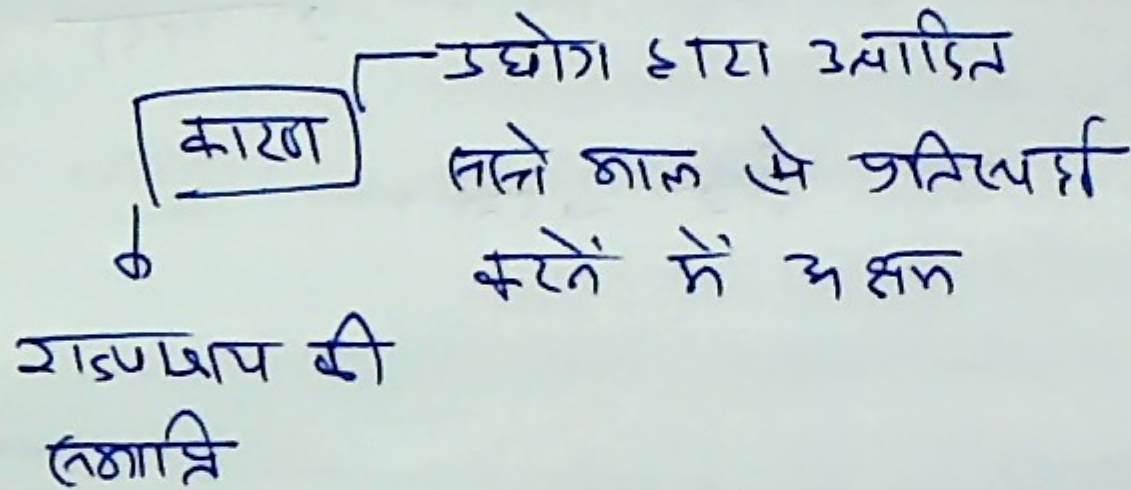 कारण
उद्योग द्वारा उत्पादित
सस्ते माल से प्रतिस्पर्धा
करनें में अक्षम
की
समाप्ति